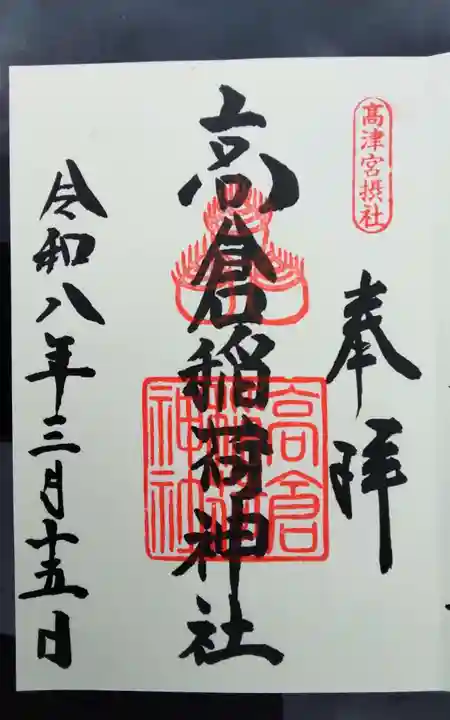 高津宮摂社
奉拝
高倉稲荷神社
高倉稲荷神社
令和八年三月十五日